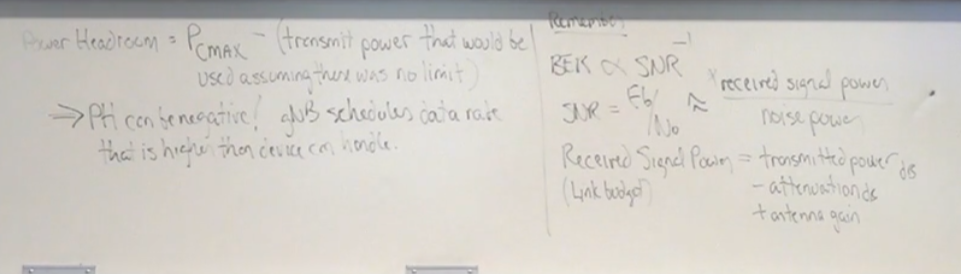 Power Headroom = P_CMAX - (transmit power that would be
used assuming there was no limit)
⇒ PH can be negative! gNB schedules data rate
that is higher than device can handle.
Remember
BER ∝ SNR^-1
SNR = Eb/No ≈ received signal power / noise power
Received Signal Power = transmitted power dB
(Link budget) - attenuation dB
+ antenna gain